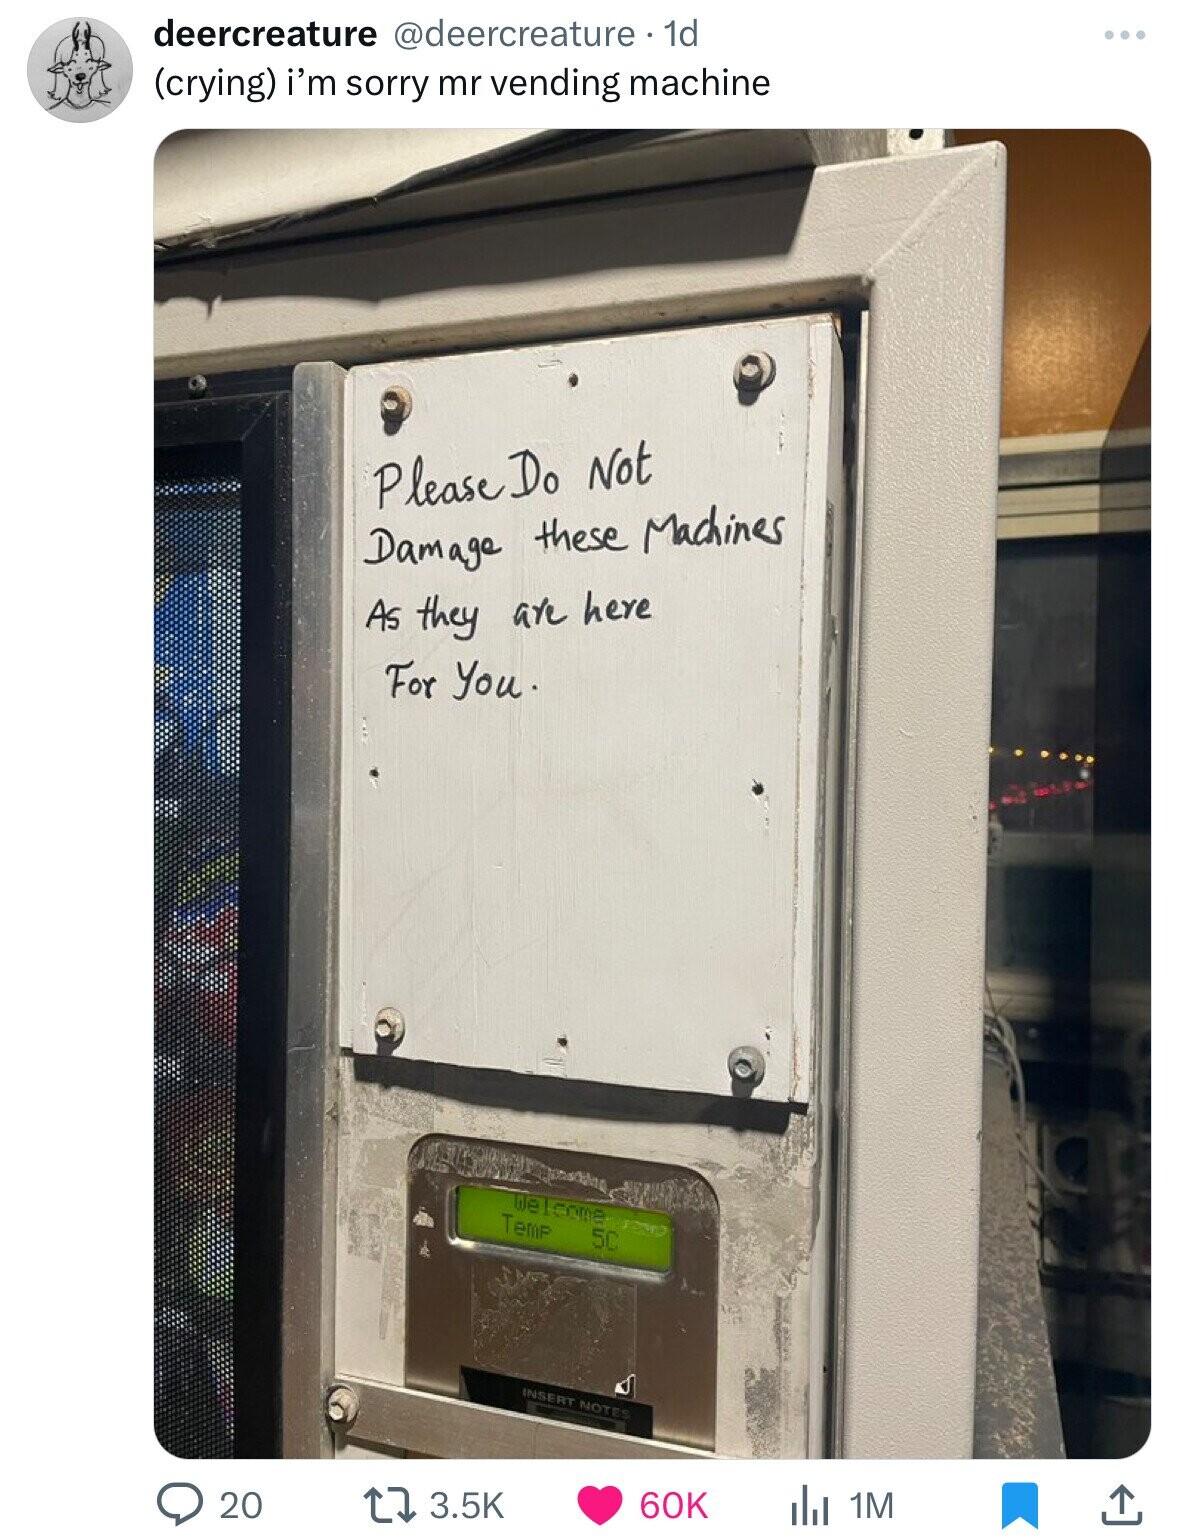 deercreature @deercreature · 1d
(crying) i’m sorry mr vending machine
Please Do Not
Damage these Machines
As they are here
For You.
Welcome
Temp 5C
INSERT NOTES
20 3.5K 60K 1M